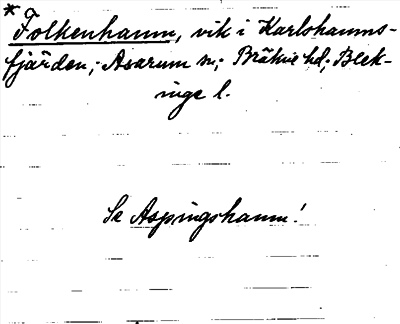 * Folkenhamn, vik i Karlshamns-
fjärden; Asarum sn; Bräkne hd; Blek-
inge l.
Se Aspingshamn!